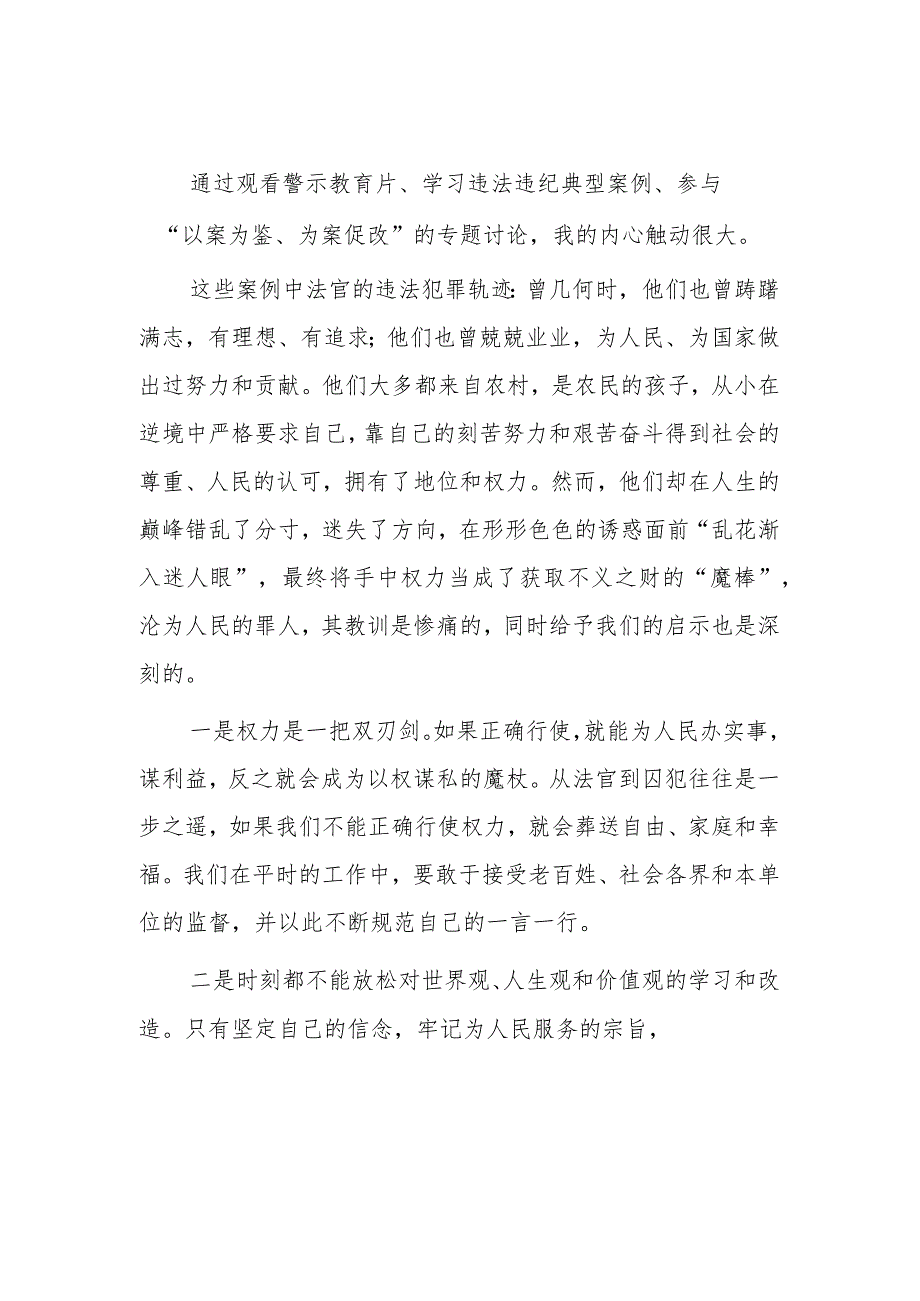 通过观看警示教育片、学习违法违纪典型案例、参与
“以案为鉴、为案促改”的专题讨论，我的内心触动很大。
这些案例中法官的违法犯罪轨迹：曾几何时，他们也曾踌躇
满志，有理想、有追求；他们也曾兢兢业业，为人民、为国家做
出过努力和贡献。他们大多都来自农村，是农民的孩子，从小在
逆境中严格要求自己，靠自己的刻苦努力和艰苦奋斗得到社会的
尊重、人民的认可，拥有了地位和权力。然而，他们却在人生的
巅峰错乱了分寸，迷失了方向，在形形色色的诱惑面前“乱花渐
入迷人眼”，最终将手中权力当成了获取不义之财的“魔棒”，
沦为人民的罪人，其教训是惨痛的，同时给予我们的启示也是深
刻的。
一是权力是一把双刃剑。如果正确行使，就能为人民办实事，
谋利益，反之就会成为以权谋私的魔杖。从法官到囚犯往往是一
步之遥，如果我们不能正确行使权力，就会葬送自由、家庭和幸
福。我们在平时的工作中，要敢于接受老百姓、社会各界和本单
位的监督，并以此不断规范自己的一言一行。
二是时刻都不能放松对世界观、人生观和价值观的学习和改
造。只有坚定自己的信念，牢记为人民服务的宗旨，